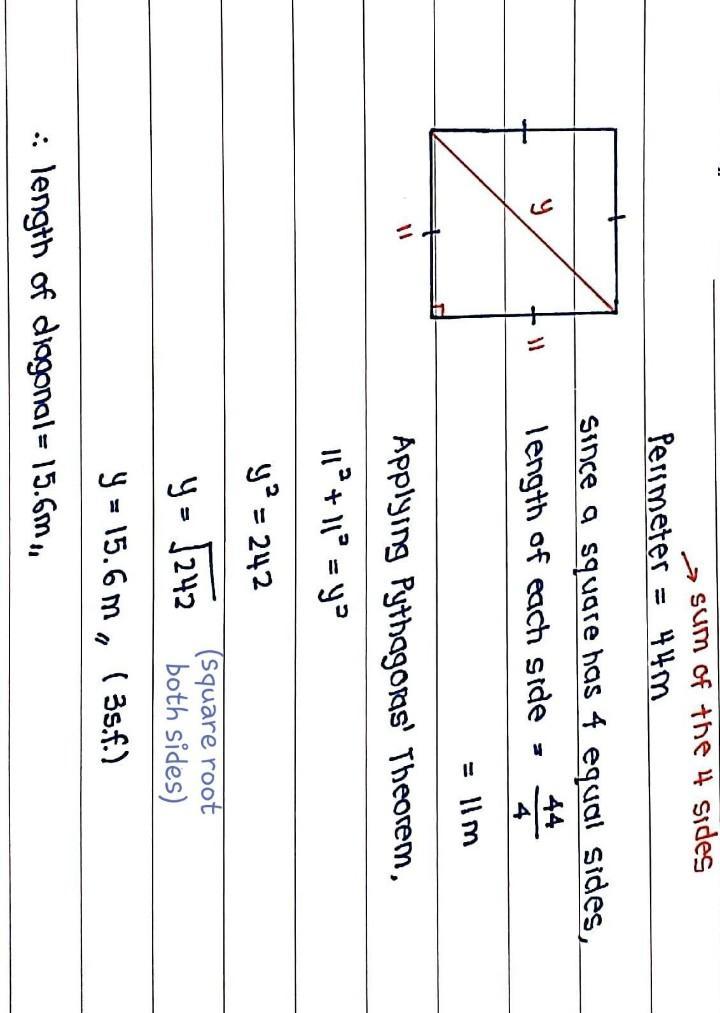 → sum of the 4 sides
Perimeter = 44m
since a square has 4 equal sides,
length of each side = 44/4
= 11m
y
11
11
Applying Pythagoras' Theorem,
11² + 11² = y²
y² = 242
y = √242 (square root both sides)
y = 15.6m,, (3s.f.)
∴ length of diagonal = 15.6m,,